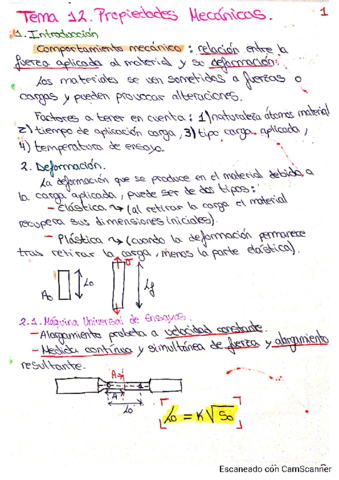 Tema 12. Propiedades Mecánicas. 1
1. Introducción
Comportamiento mecánico: relación entre la
fuerza aplicada al material y se deformación:
Los materiales se ven sometidos a fuerzas o
cargas y pueden provocar alteraciones.
Factores a tener en cuenta: 1) naturaleza átomos material
2) tiempo de aplicación carga, 3) tipo carga aplicada,
4) temperatura de ensayo.
2. Deformación.
La deformación que se produce en el material debido a
la carga aplicada, puede ser de dos tipos:
- Elástica ~> (al retirar la carga el material
recupera sus dimensiones iniciales).
- Plástica ~> (cuando la deformación permanece
tras retirar la carga, menos la parte elástica).
A0 L0 Lf
2.1. Máquina Universal de Ensayos.
- Alargamiento probeta a velocidad constante.
- Medida continua y simultánea de fuerza y alargamiento
resultante.
A
L0
L0 = K√S0
Escaneado con CamScanner